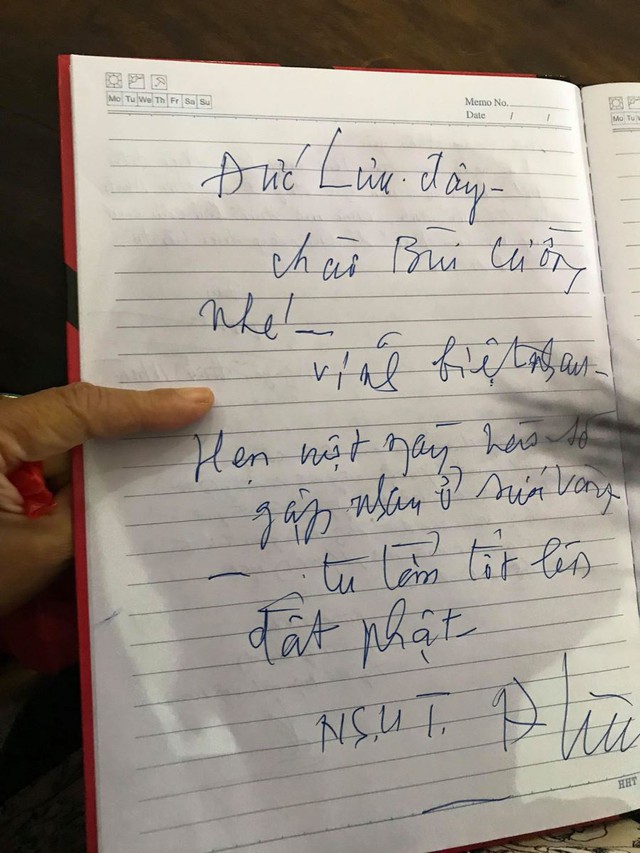 Mo Tu We Th Fr Sa Su
Memo No.
Date / /
Mo Tu W
Đức Lưu. đây -
chào Bùi Cường
nhé! -
vĩnh biệt nhau -
Hẹn một ngày nào đó
gặp nhau ở suối vàng
- tu tâm tốt lên
đất phật -
N.S.Ư.T. Đ Lưu
HHT